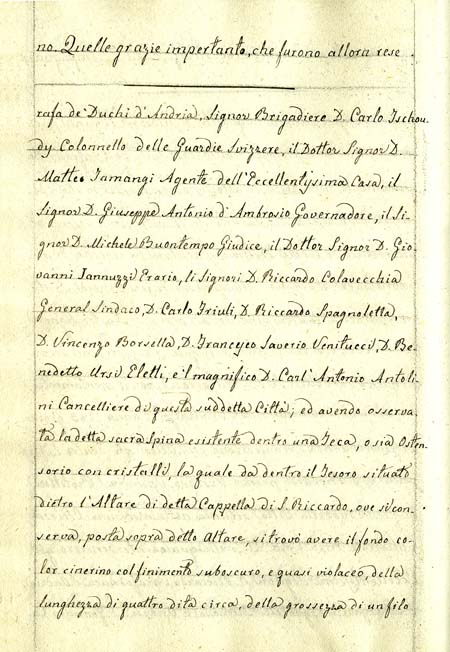 no. Quelle grazie impertanto, che furono allora rese
rafa de' Duchi d'Andria, Signor Brigadiere D. Carlo Tschou-
dy Colonnello delle Guardie Svizzere, il Dottor Signor D.
Matteo Tamangi Agente dell'Eccellentissima Casa, il
Signor D. Giuseppe Antonio d'Ambrosio Governadore, il Si-
gnor D. Michele Buontempo Giudice, il Dottor Signor D. Gio-
vanni Iannuzzi Erario, li Signori D. Riccardo Colavecchia
General Sindaco, D. Carlo Friuli, D. Riccardo Spagnoletta,
D. Vincenzo Borsella, D. Francesco Saverio Venitucci, D. Be-
nedetto Ursi Eletti, e il magnifico D. Carl'Antonio Antoli-
ni Cancelliere di questa suddetta Città; ed avendo osserva-
ta la detta sacra Spina esistente dentro una Teca, o sia Osten-
sorio con cristalli, la quale da dentro il Tesoro situato
dietro l'Altare di detta Cappella di S. Riccardo, ove si con-
serva, posta sopra detto Altare, si trovò avere il fondo co-
lor cinerino col finimento suboscuro, e quasi violaceo, della
lunghezza di quattro dita circa, della grossezza di un filo